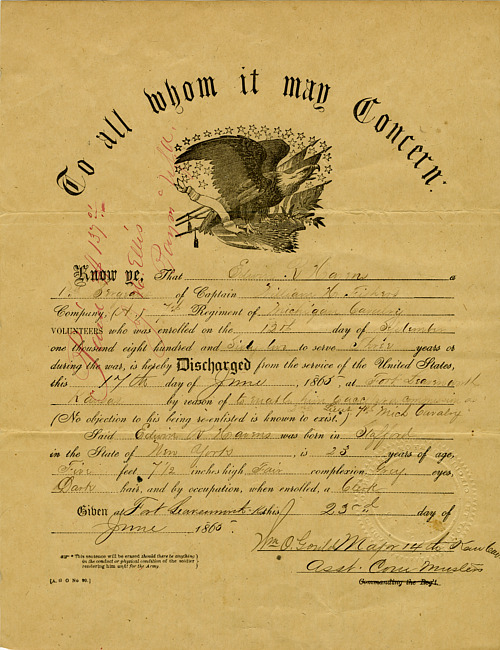 To all whom it may Concern:
Know ye, That Edwin R Havens a
of Captain
Company, (A.) 7th Regiment of Michigan Cavalry
VOLUNTEERS who was enrolled on the 12th day of September
one thousand eight hundred and Sixty two to serve Three years or
during the war, is hereby Discharged from the service of the United States,
this 17th day of June, 1865, at Fort Leavenworth
Kansas by reason of to enable him
7th Mich Cavalry
(No objection to his being re-enlisted is known to exist.)
Said Edwin R Havens was born in
in the State of New York, is 23 years of age,
Five feet 7 1/2 inches high, Fair complexion, Grey eyes,
Dark hair, and by occupation, when enrolled, a Clerk
Given at Fort Leavenworth Ks this 23rd day of
June 1865
Wm O. Gould Major 14th Kan Cav
Asst. Com Musters
Commanding the Reg't.
This sentence will be erased should there be anything
in the conduct or physical condition of the soldier
rendering him unfit for the Army.
[A. G. O. No. 99.]